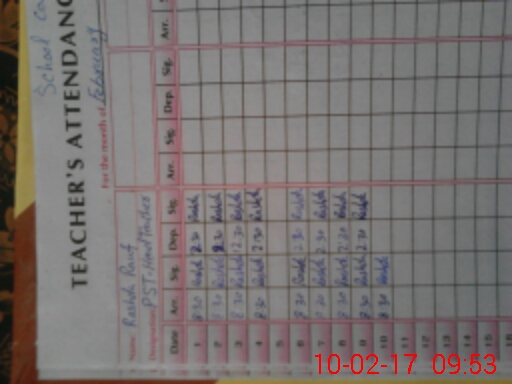 School
TEACHER'S ATTENDANC
For the month of February
Name: Rashda Rauf
Designation PST. Head Teacher
Date Arr. Sig. Dep. Sig. Arr. Sig. Dep. Sig. Arr.
1 8.30 Rashda 2.30 Rashda
2 8.30 Rashda 2.30 Rashda
3 8.30 Rashda 12.30 Rashda
4 8.30 Rashda 2.30 Rashda
5
6 8.30 Rashda 2.30 Rashda
7 8.30 Rashda 2.30 Rashda
8 8.30 Rashda 2.30 Rashda
9 8.30 Rashda 2.30 Rashda
10 8.30 Rashda
11
12
13
14
15
16
10-02-17 09:53